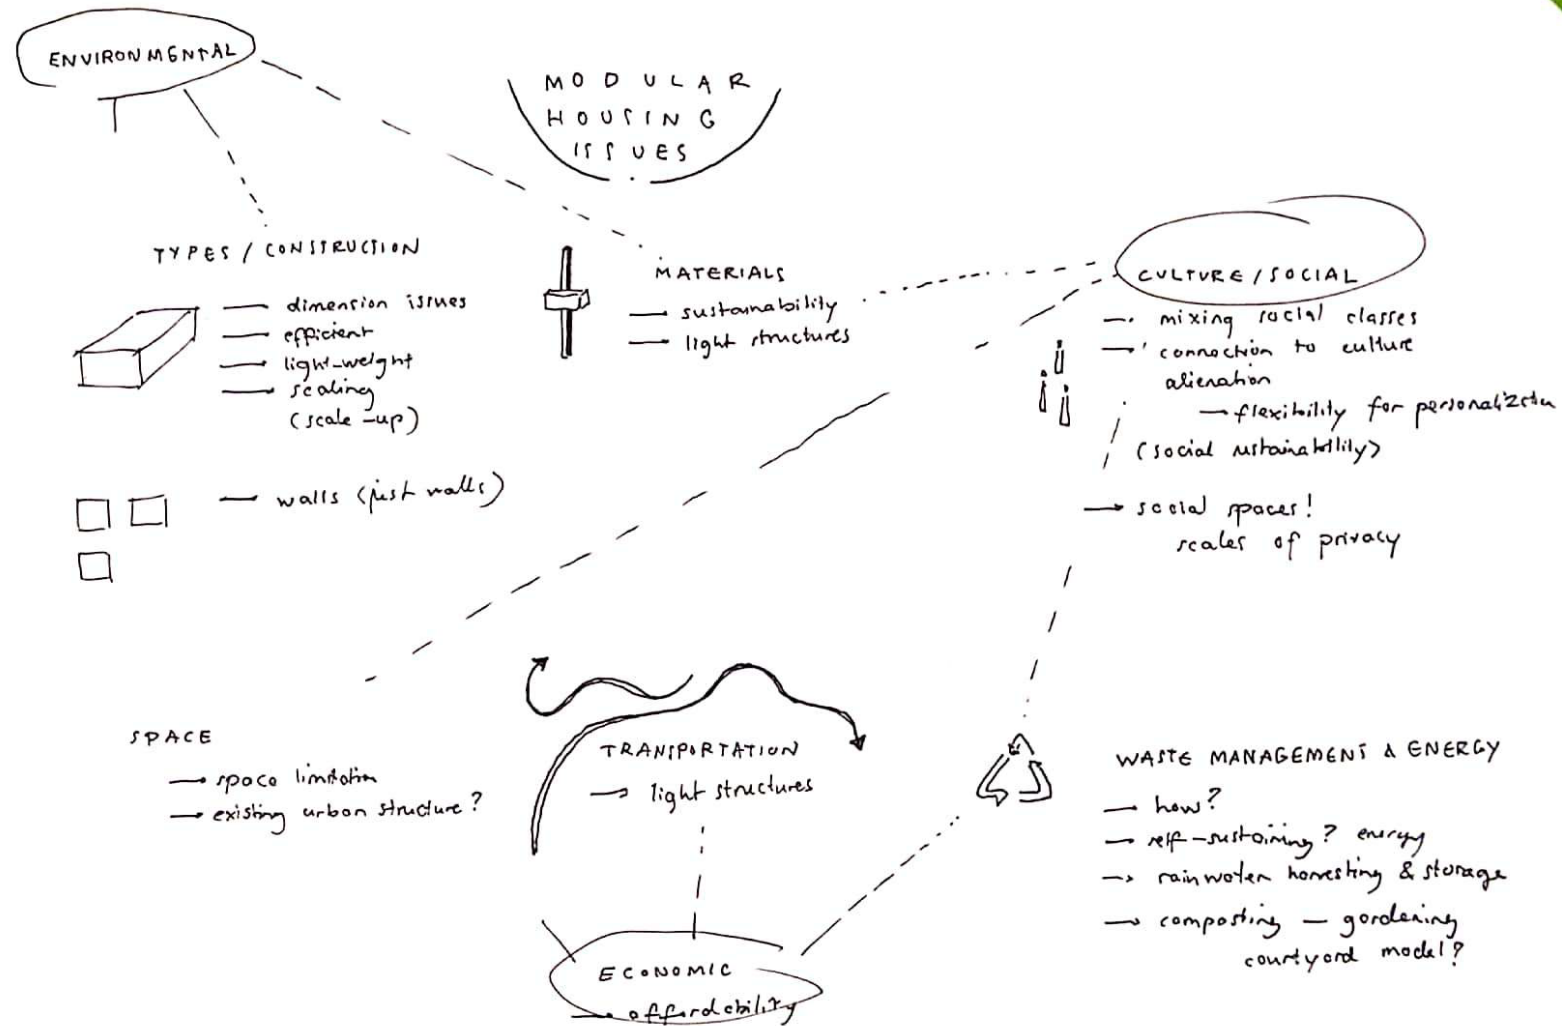 ENVIRONMENTAL
MODULAR
HOUSING
ISSUES
TYPES / CONSTRUCTION
dimension issues
efficient
light-weight
scaling
(scale-up)
walls (just walls)
MATERIALS
sustainability
light structures
CULTURE / SOCIAL
mixing social classes
connection to culture
alienation
flexibility for personalization
(social sustainability)
social spaces!
scales of privacy
SPACE
space limitation
existing urban structure?
TRANSPORTATION
light structures
WASTE MANAGEMENT & ENERGY
how?
self-sustaining? energy
rainwater harvesting & storage
composting — gardening
courtyard model?
ECONOMIC
affordability